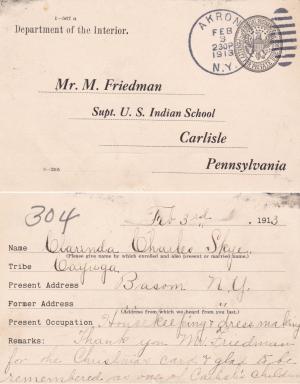 5-567 a
Department of the Interior.
AKRON
FEB
3
230P
1913
N.Y.
Mr. M. Friedman
Supt. U. S. Indian School
Carlisle
Pennsylvania
304
Feb 3rd, 1913
Name Clarinda Charles Skye
(Please give name by which enrolled and also present or married name)
Tribe Cayuga
Present Address Basom N.Y.
Former Address
(Address from which we heard from you last.)
Present Occupation House Keeping & dress making
Remarks: Thank you Mr. Friedman
for the Christmas card & glad to be
remembered as one of Carlisle's Children